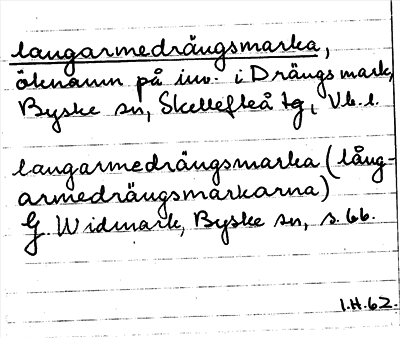 langarmedrängsmarka,
öknamn på inv. i Drängsmark,
Byske sn, Skellefteå tg, Vb. l.
langarmedrängsmarka (lång-
armedrängsmarkarna)
G. Widmark, Byske sn, s. 66.
1.H.62.